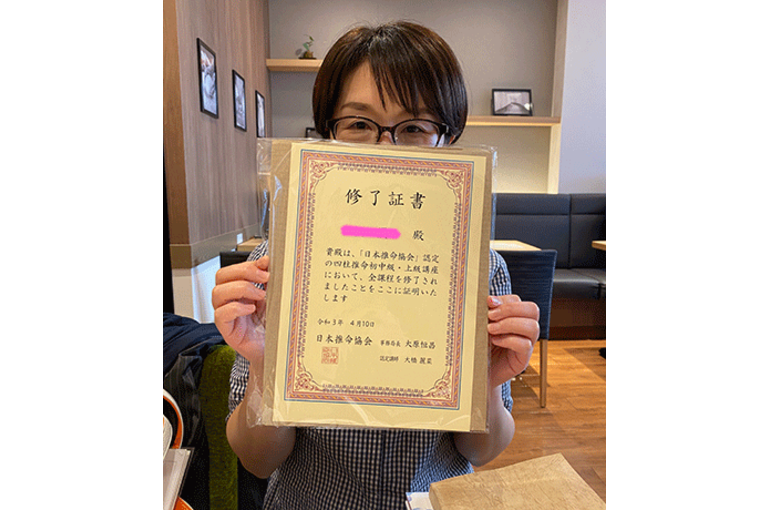 修了証書
殿
貴殿は、「日本推命協会」認定
の四柱推命初中級・上級講座
において、全課程を修了され
ましたことをここに証明いた
します
令和3年 4月10日
日本推命協会 事務局長 大原恒昌
認定講師 大橋 麗菜